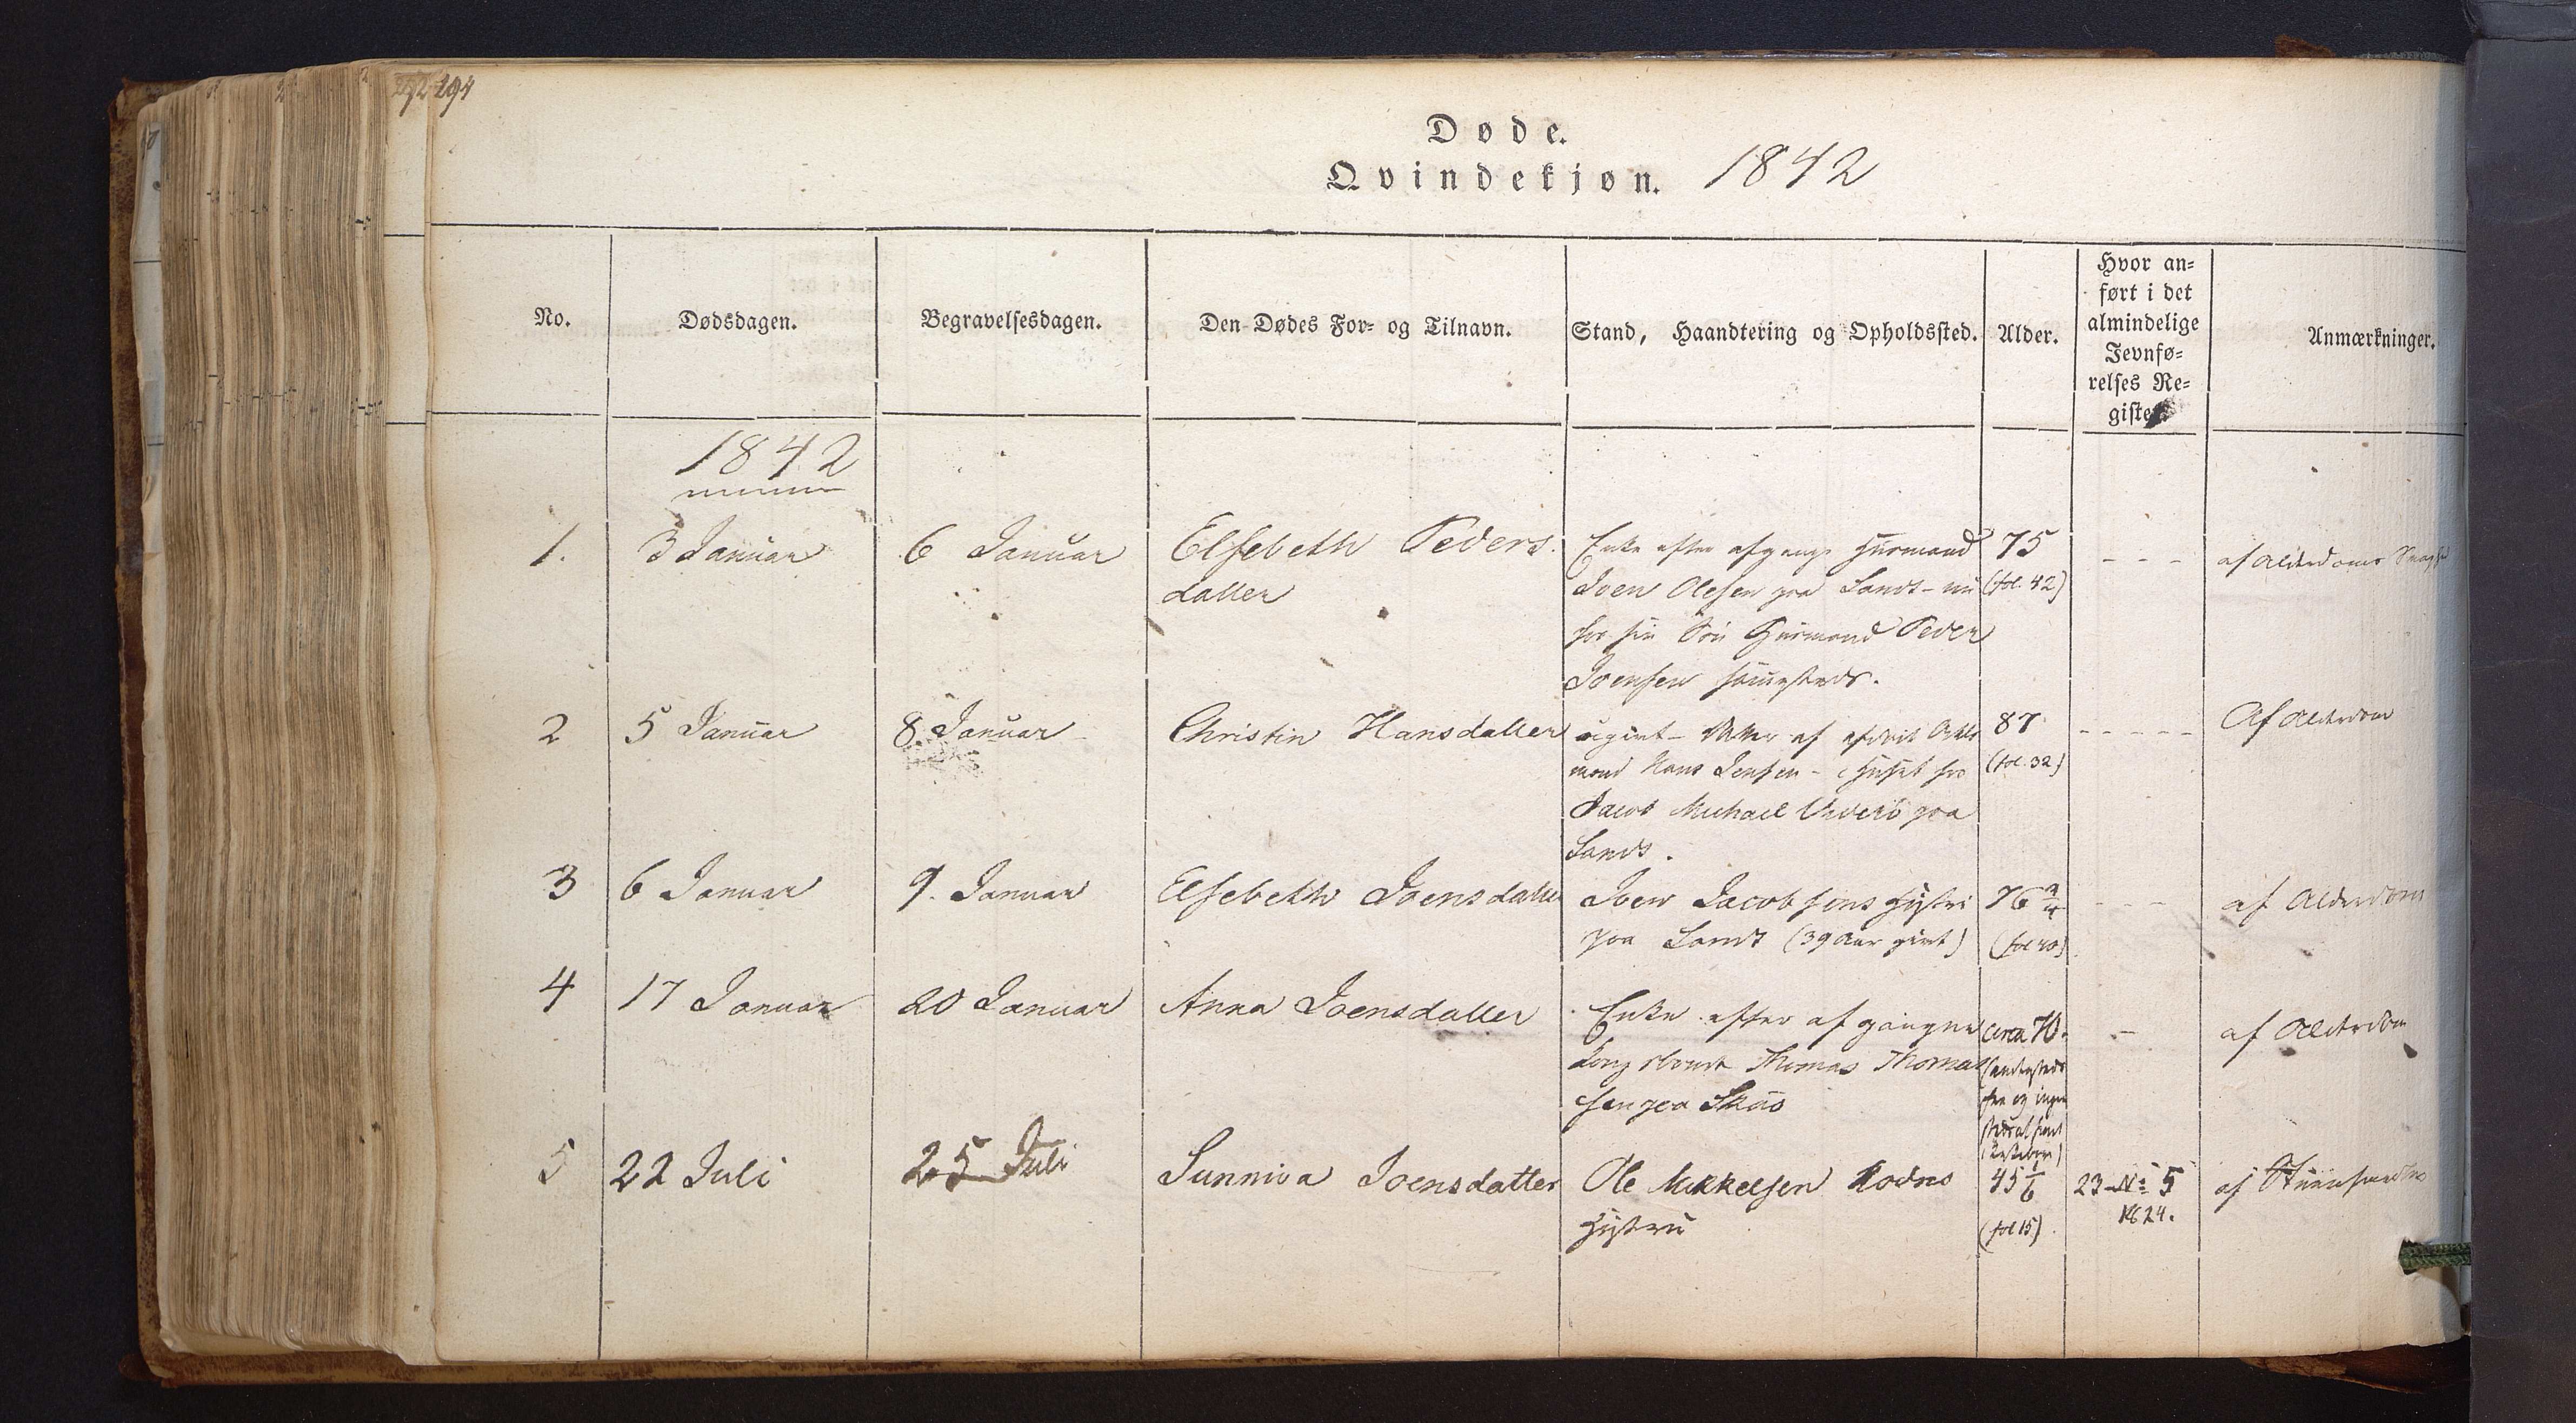 294
Døde.
Qvindekjøn. 1842
No.
Dødsdagen.
Begravelsesdagen.
Den Dødes For- og Tilnavn.
Stand, Haandtering og Opholdssted.
Alder.
Hvor an-
ført i det
almindelige
Jevnfø-
relses Re-
gister.
Anmærkninger.
1842
1.
3 Januar
6 Januar
Elsebeth Peders
datter
Enke efter afgangn Huusmand
Joen Olesen paa Sand - nu
hos sin Søn Huusmand Peder
Joensen sammesteds.
75
(fol. 42)
- - -
af Alderdoms
2
5 Januar
8 Januar
Christin Hansdatter
ugivt - Datter af
mand Hans Jensen - i Huset hos
Jacob Michael paa
Sand.
87
(fol. 32)
- - - - -
Af Alderdom
3
6 Januar
9. Januar
Elsebeth Joensdatter
Joen Jacobsens Hustru
paa Sand (39 Aar givt)
76 3/4
(fol 40)
- - -
af Alderdom
4
17 Januar
20 Januar
Anna Joensdatter
Enke efter afgangne
Kongsbonde Thomas Thomas
sen paa
circa 70.
-
af Alderdom
5
22 Juli
25 Juli
Sunniva Joensdatter
Ole Mikkelsen
Hustru
45 1/6
(fol 15)
23 No 5
1824.
af